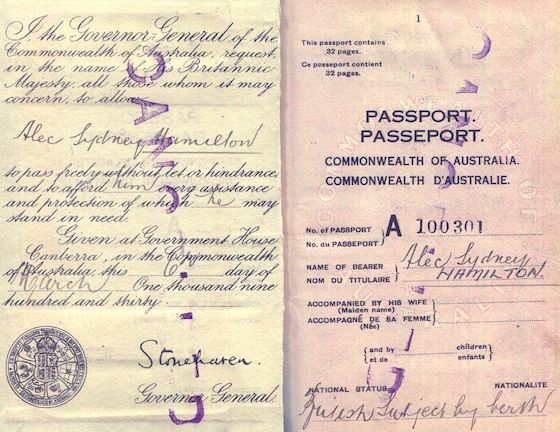 I the Governor-General of the
Commonwealth of Australia, request,
in the name of His Britannic
Majesty, all those whom it may
concern, to allow
Alec Sydney Hamilton
to pass freely without let or hindrance,
and to afford him every assistance
and protection of which he may
stand in need.
Given at Government House
Canberra, in the Commonwealth
of Australia, this 6 day of
March One thousand nine
hundred and thirty
Stonehaven.
Governor General.
1
This passport contains
32 pages.
Ce passeport contient
32 pages.
PASSPORT.
PASSEPORT.
COMMONWEALTH OF AUSTRALIA.
COMMONWEALTH D'AUSTRALIE.
No. of PASSPORT
No. du PASSEPORT
A 100301
NAME OF BEARER
NOM DU TITULAIRE
Alec Sydney
HAMILTON.
ACCOMPANIED BY HIS WIFE
(Maiden name)
ACCOMPAGNÉ DE SA FEMME
(Née)
and by children
et de enfants
NATIONAL STATUS NATIONALITE
British Subject by birth
CANC